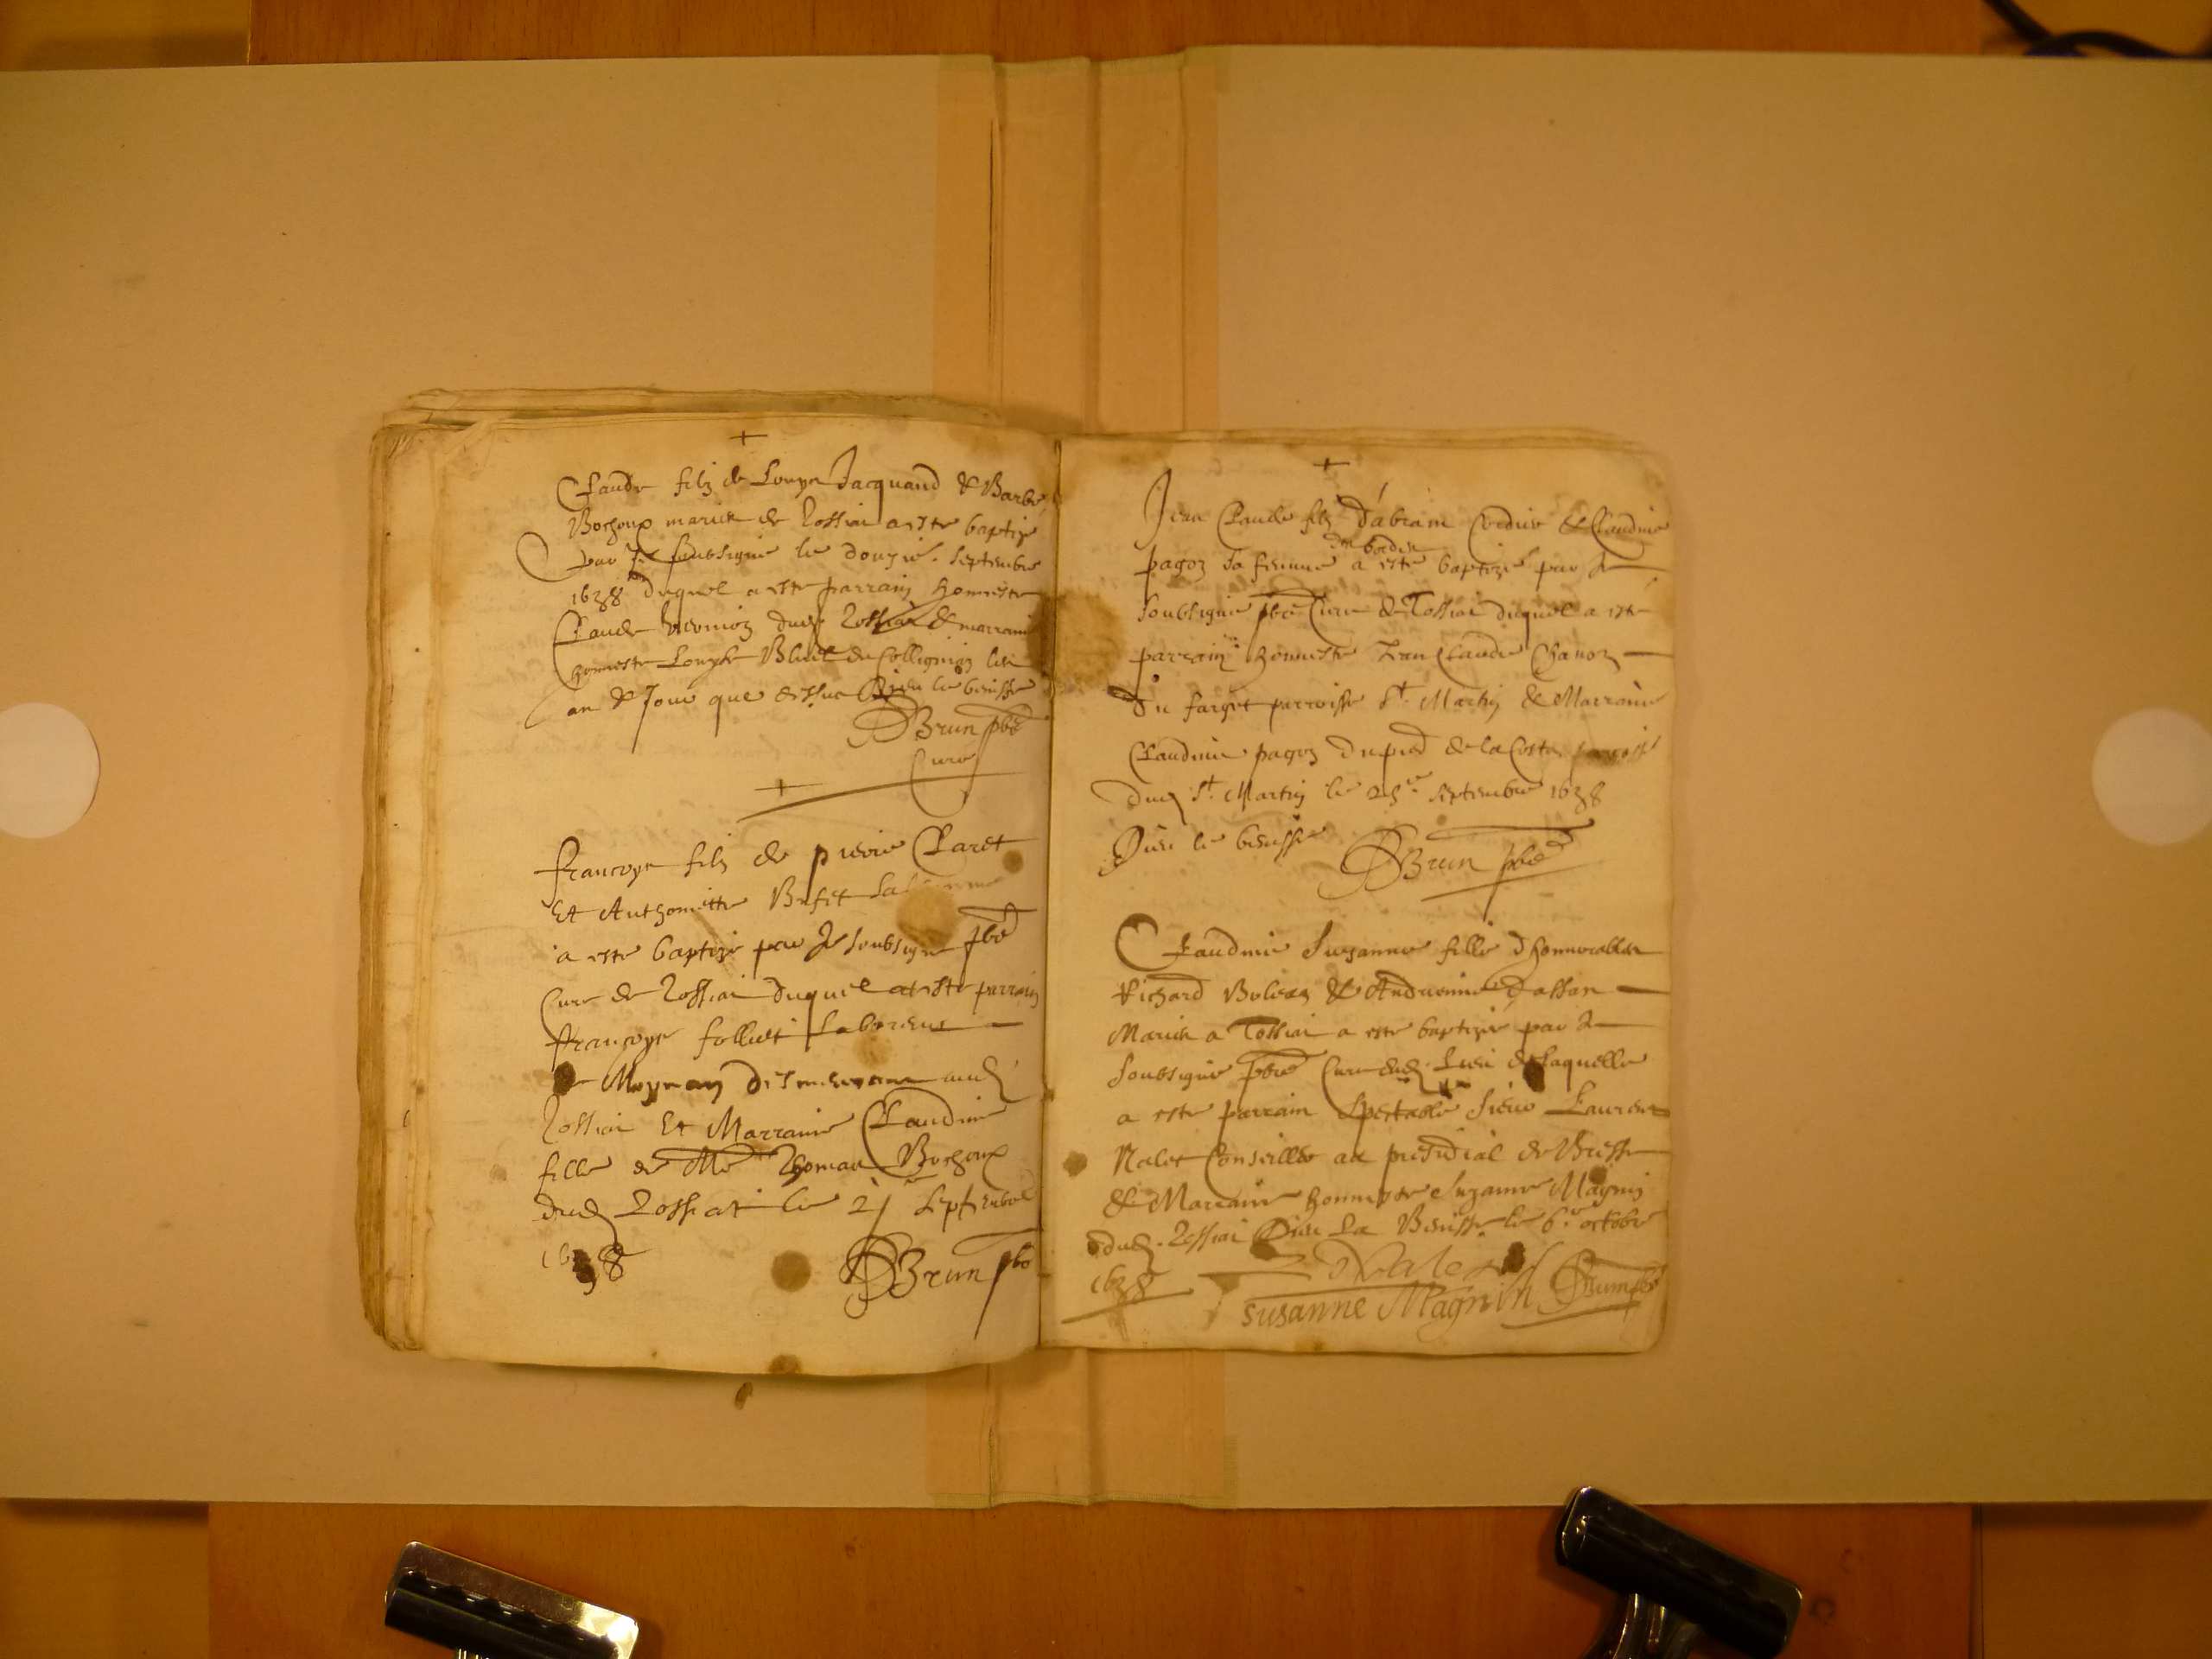 +
Claude filz de Louys Jacquand & Barbe
Bochoux mariez de Tossiat a este baptize
par Je soubsigné le douzie. septembre
1638 duquel a este parrain honneste
Claude dud. Tossiat & marraine
honneste Louyse du Collignion les
an & Jour que dessus Dieu le benisse
DBrun pbre
Cure
+
francoys filz de pierre Claret
Et Anthoinette Bufet sa femme
a este baptizé par Je soubsigné pbre
Cure de Tossiat duquel a este parrain
françoys folliet laboreur
Moyran aud.
Tossiat Et Marraine Claudine
fille de Me Thomas Bochoux
dud Tossiat le 21 septembre
1638 DBrun pbre
+
Jean Claude filz d'abram Cordier & Claudine
pagoz sa femme a este baptizé par Je
soubsigné pbre Cure de Tossiat duquel a este
parrain honneste Jean Claude Chanoz
du farget parroisse St. Martin & Marraine
Claudine pagoz du pied de la Coste parroisse
dud St. Martin le septembre 1638
Dieu le benisse DBrun pbre
Claudine Suzanne fille d'honnorables
Richard & Andreanne
Mariez a Tossiat a este baptizée par Je
soubsigné pbre Cure dud. Lieu de laquelle
a este parrain Spectable sieur Laurens
Nalet Conseiller au presidial de Bresse
& Marraine honneste Suzanne Magnin
dud. Tossiat Dieu la Benisse le 6e octobre
1638 Nalet DBrun pbre
susanne Magnin